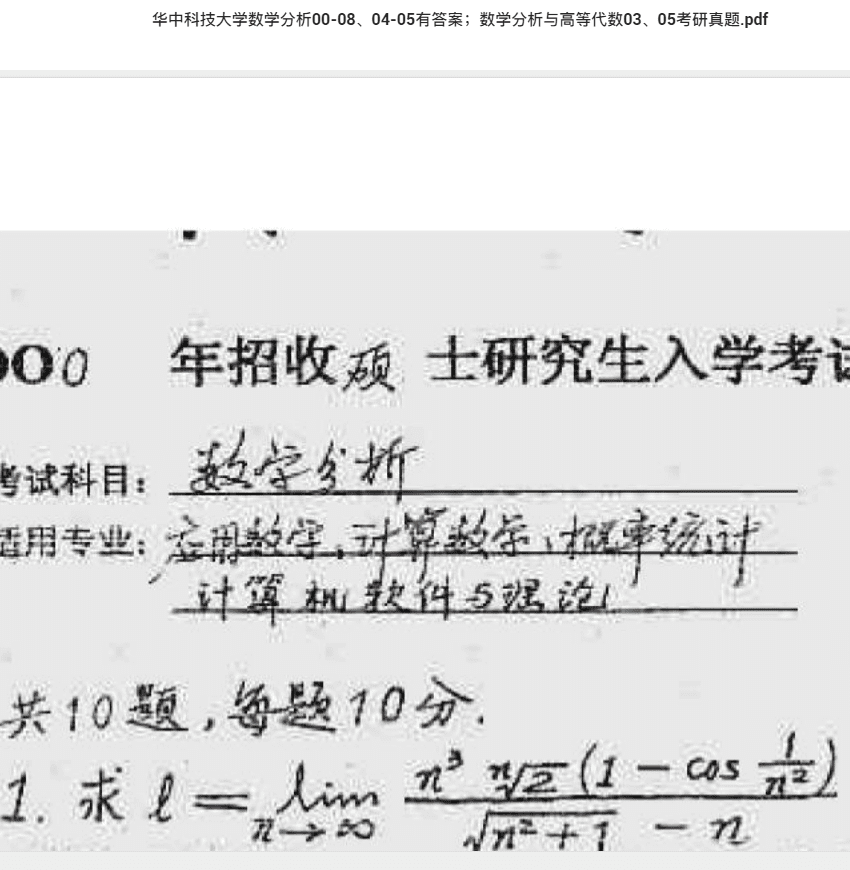 华中科技大学数学分析00-08、04-05有答案；数学分析与高等代数03、05考研真题.pdf
000 年招收硕 士研究生入学考试
考试科目： 数学分析
适用专业： 应用数学、计算数学、概率统计
计算机软件与理论
共10题，每题10分.
1. 求 l = lim_{n→∞} \frac{n^3 \sqrt[n]{2} (1 - cos \frac{1}{n^2})}{\sqrt{n^2+1} - n}